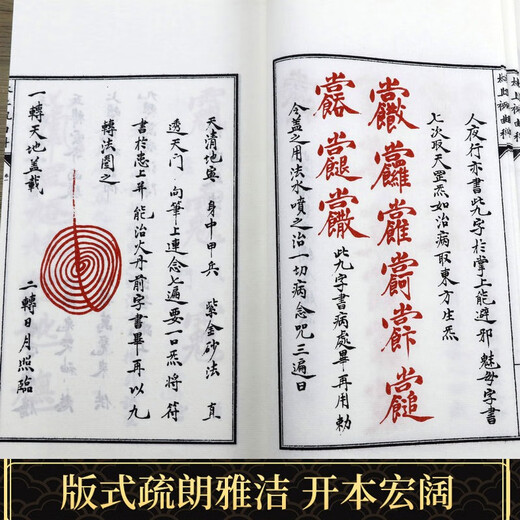 人夜行亦書此九字於掌上能避邪魅每字書
七次取天罡炁如治病取東方生炁
此九字書病處畢再用勅
令蓋之用法水噴之治一切病念咒三遍曰
天清地寧 身中甲兵 紫金砂法 直
透天門 向筆上連念七遍要一口炁將符
書於患上并能治火丹前字書畢再以九
轉法圈之
一轉天地蓋載 二轉日月照臨
版式疏朗雅洁 开本宏阔